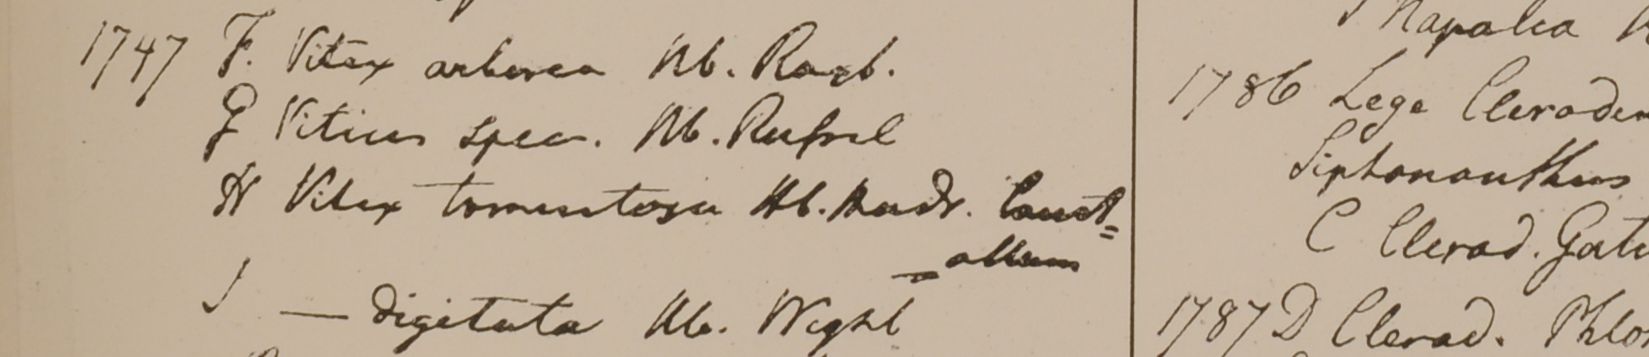 1747 F. Vitex arborea Hb. Roxb.
G Viticis spec. Hb. Russel
H Vitex tomentosa Hb. Madr.
J — digitata Hb. Wight
1786 Lege Cleroden
Siphonanthus
C Clerod.
1787 D Clerod.